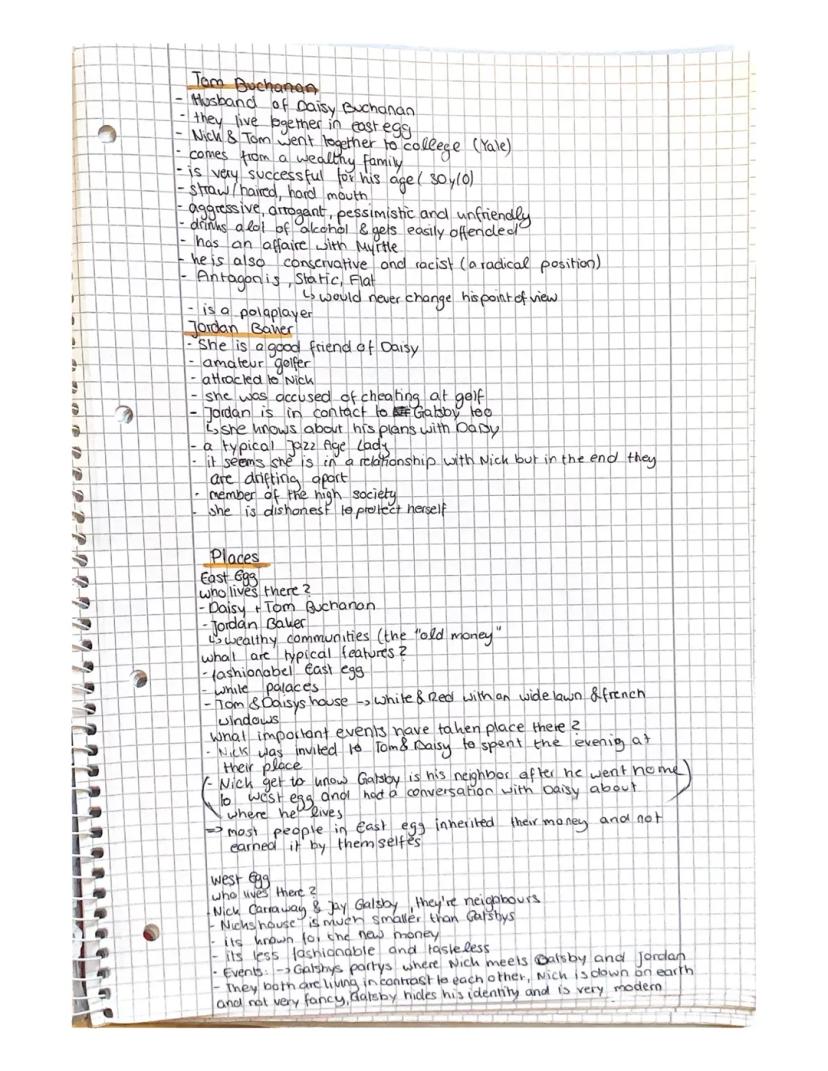 Tom Buchanan
- Husband of Daisy Buchanan
- they live together in east egg
- Nick & Tom went together to college (Yale)
- comes from a wealthy family
- is very successful for his age (30 y/o)
- straw/haired, hard mouth
- aggressive, arrogant, pessimistic and unfriendly
- drinks alot of alcohol & gets easily offended
- has an affaire with Myrtle
- he is also conservative and racist (a radical position)
- Antagonis, Static, Flat
↳ would never change his point of view
- is a poloplayer
Jordan Baker
- She is a good friend of Daisy
- amateur golfer
- attracted to Nick
- she was accused of cheating at golf
- Jordan is in contact to Gatsby too
↳ she knows about his plans with Daisy
- a typical Jazz Age Lady
- it seems she is in a relationship with Nick but in the end they
are drifting apart
- member of the high society
- she is dishonest to protect herself
Places
East Egg
who lives there?
- Daisy + Tom Buchanan
- Jordan Baker
↳ wealthy communities (the "old money"
what are typical features?
- fashionabel East egg
- white palaces
- Tom & Daisys house -> white & Red with an wide lawn & french
windows
what important events have taken place there?
- Nick was invited to Tom & Daisy to spent the evenig at
their place
(- Nick get to know Gatsby is his neighbor after he went home)
to west egg and had a conversation with Daisy about
where he lives
=> most people in East egg inherited their money and not
earned it by themselfes
West Egg
who lives there?
- Nick Carraway & Jay Gatsby, they're neighbours
- Nicks house is much smaller than Gatsbys
- its known for the new money
- its less fashionable and tasteless
- Events: -> Gatsbys partys where Nick meets Gatsby and Jordan
- They both are living in contrast to each other, Nick is down on earth
and not very fancy, Gatsby hides his identity and is very modern